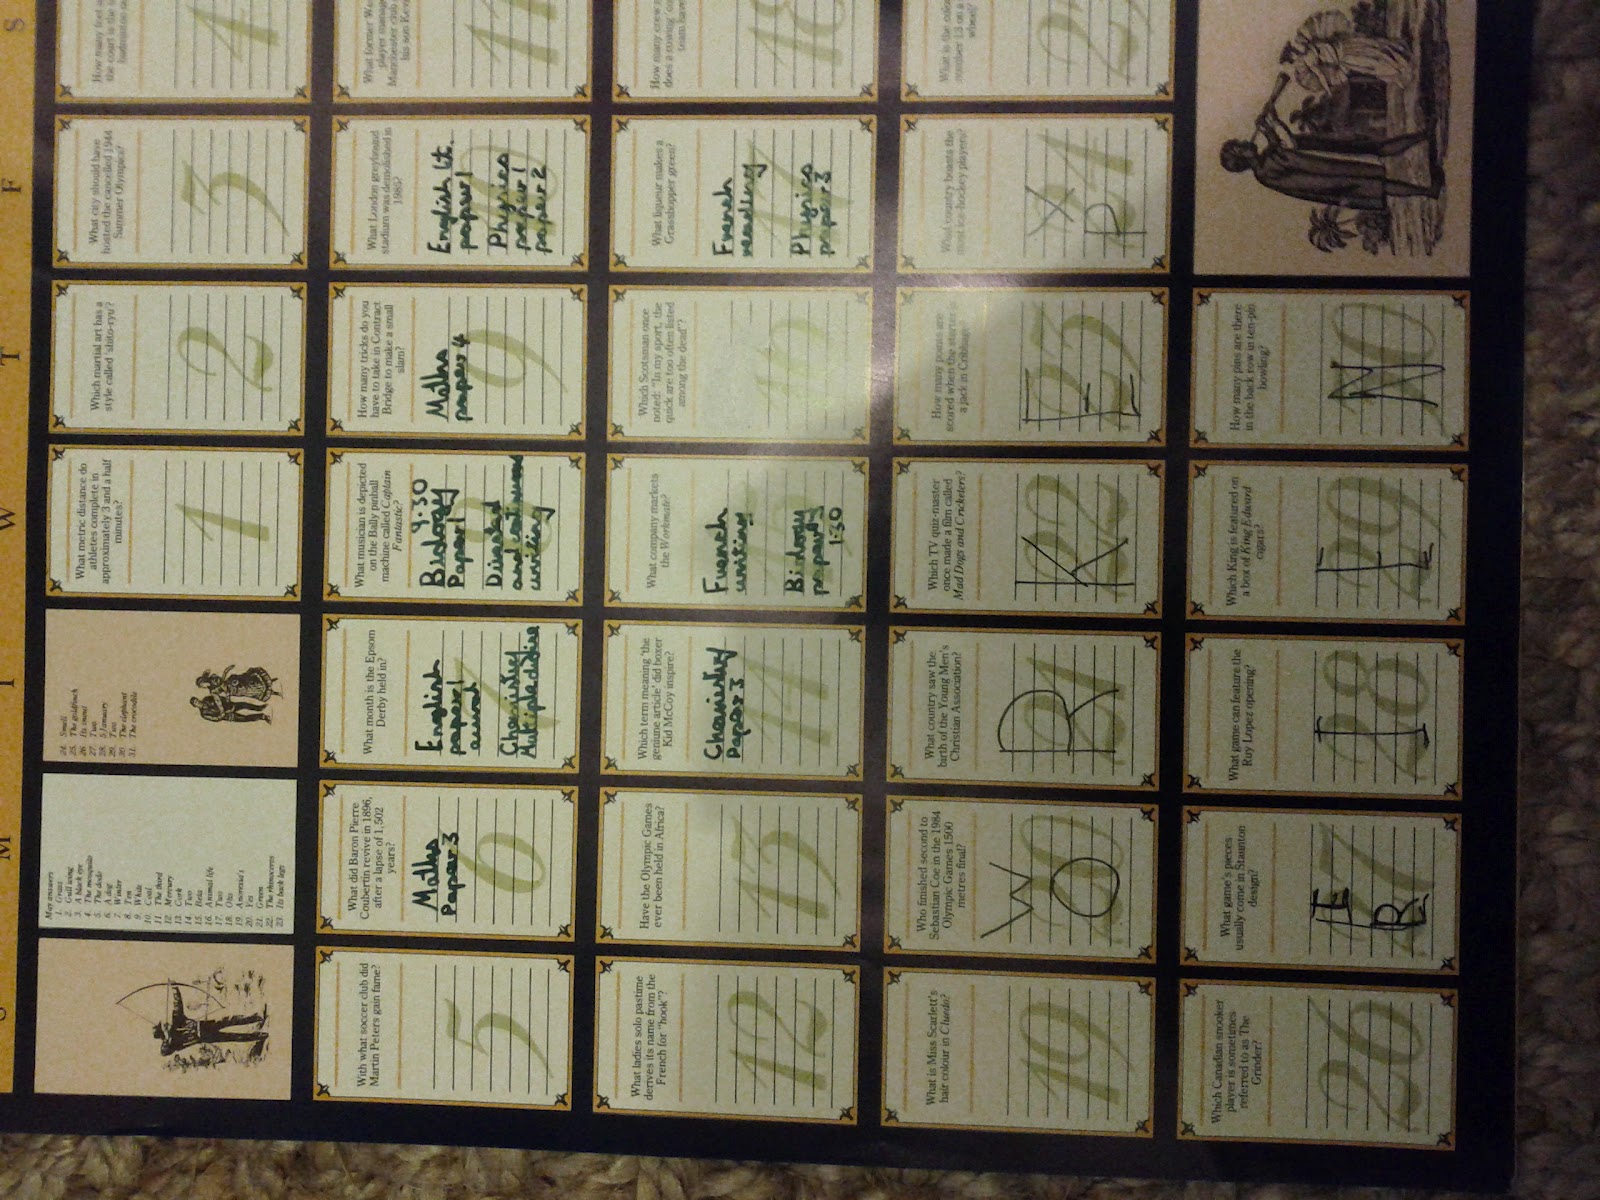 M T W T F S
May answers
1. Grass
2. Gull wing
3. A black eye
4. The mosquito
5. The dodo
6. A dog
7. Winter
8. Ten
9. White
10. Coal
11. The third
12. Mercury
13. Cork
14. Two
15. Bees
16. Animal life
17. Two
18. Oxo
19. America's
20. Yes
21. Green
22. The rhinoceros
23. Its back legs
24. Smell
25. The goldfinch
26. Its snout
27. Two
28. 5 January
29. Two
30. The elephant
31. The crocodile
What metric distance do
athletes complete in
approximately 3 and a half
minutes?
1
Which martial art has a
style called 'shito-ryu'?
2
What city should have
hosted the cancelled 1944
Summer Olympics?
3
How many feet
the court is the
4
With what soccer club did
Martin Peters gain fame?
5
What did Baron Pierre
Coubertin revive in 1896,
after a lapse of 1,502
years?
Maths
Paper 3
6
What month is the Epsom
Derby held in?
English
paper 1
Chemistry
Multiple choice
7
What musician is depicted
on the Bally pinball
machine called Captain
Fantastic?
9.30
Biology
Paper 1
Directed
and continuous
writing
8
How many tricks do you
have to take in Contract
Bridge to make a small
slam?
Maths
paper 4
9
What London greyhound
stadium was demolished in
1985?
English lit.
paper 1
Physics
paper 1
paper 2
10
What former
player
Manchester club
his son
11
What ladies solo pastime
derives its name from the
French for "hook"?
12
Have the Olympic Games
ever been held in Africa?
13
Which term meaning 'the
genuine article' did boxer
Kid McCoy inspire?
Chemistry
Paper 3
14
What company markets
the Workmate?
French
writing
Biology
1.30
15
Which Scotsman once
noted: "In my sport, the
quick are too often listed
among the dead"?
16
What liqueur makes a
Grasshopper green?
French
reading
Physics
paper 3
17
How many crew
does a rowing
team have
18
What is Miss Scarlett's
hair colour in Cluedo?
19
Who finished second to
Sebastian Coe in the 1984
Olympic Games 1500
metres final?
W
O
20
What country saw the
birth of the Young Men's
Christian Association?
R
21
Which TV quiz-master
once made a film called
Mad Dogs and Cricketers?
K
22
How many points are
scored when the starter is
a jack in Cribbage
E
23
What country boasts the
most ice-hockey players?
X
P
24
What is the colour
number 13 on a
wheel?
25
Which Canadian snooker
player is sometimes
referred to as The
Grinder?
26
What game's pieces
usually come in Staunton
design?
E
R
27
What game can feature the
Ruy Loper opening?
I
28
Which King is featured on
a box of King Edward
cigars?
E
29
How many pins are there
in the back row in ten-pin
bowling?
N
30